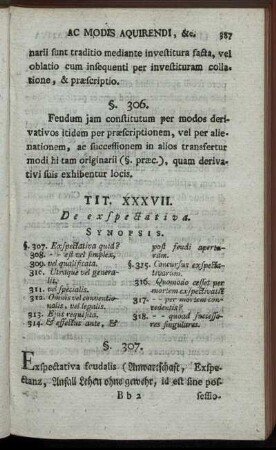 AC MODIS AQUIRENDI, &c. 387
narii sunt traditio mediante investitura facta, vel
oblatio cum insequenti per investituram colla-
tione, & præscriptio.
§. 306.
Feudum jam constitutum per modos deri-
vativos itidem per præscriptionem, vel per alie-
nationem, ac successionem in alios transfertur
modi hi tam originarii (§. præc.), quam deriva-
tivi suis exhibentur locis.
TIT. XXXVII.
De exspectativa.
SYNOPSIS.
§. 307. Exspectativa quid?
308. - - est vel simplex,
309. vel qualificata.
310. Utraque vel genera-
lis,
311. vel specialis.
312. Omnis vel conventio-
nalis, vel legalis.
313. Ejus requisita.
314. & effectus ante, &
post feudi apertu-
ram.
§. 315. Concursus exspecta-
tivarum.
316. Quomodo cesset per
mortem exspectivati?
317. - - per mortem con-
cedentis?
318. - - quoad successo-
res singulares.
§. 307.
Exspectativa feudalis (Anwartschaft, Exspe-
ctanz, Anfall Lehen ohne gewehr, id est sine pos-
Bb 2 sessio-